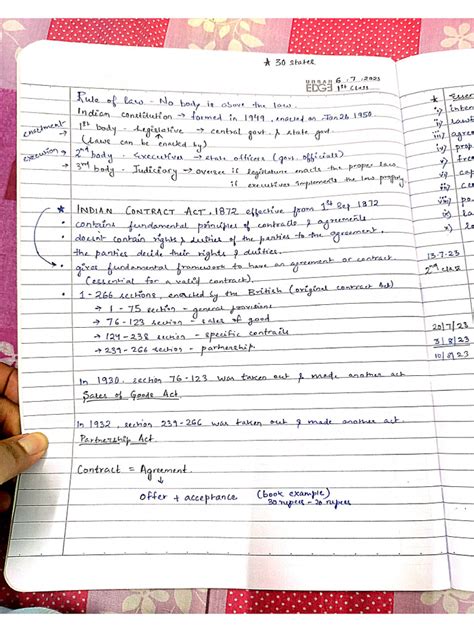 ★ 30 states
URBAN EDGE 6.7.2023
1st class
Rule of law - No body is above the law.
Indian constitution → formed in 1949, enacted on Jan 26 1950.
enactment → 1st body - Legislative → central govt. & state govt
(laws can be enacted by)
execution → 2nd body - Executives → state officers (gov. officials)
→ 3rd body - Judiciary → oversee if legislature enacts the proper law
if executives implements the law properly
★ INDIAN CONTRACT ACT, 1872 effective from 1st Sep 1872
• contains fundamental principles of contracts & agreements
• doesnt contain rights & duties of the parties to the agreement,
the parties decide their rights & duties.
• gives fundamental framework to have an agreement or contract
(essential for a valid contract).
• 1 - 266 sections, enacted by the British (original contract Act)
→ 1 - 75 section - general provisions
→ 76 - 123 section - sales of good
→ 124 - 238 section - specific contracts
→ 239 - 266 section - partnership
In 1930, section 76-123 was taken out & made another act
Sales of Goods Act.
In 1932, section 239-266 was taken out & made another act
Partnership Act.
Contract = Agreement.
↓
Offer + acceptance (book example)
30 rupees - 20 rupees
13-7-23
2nd class
20/7/23
3/8/23
10/8/23